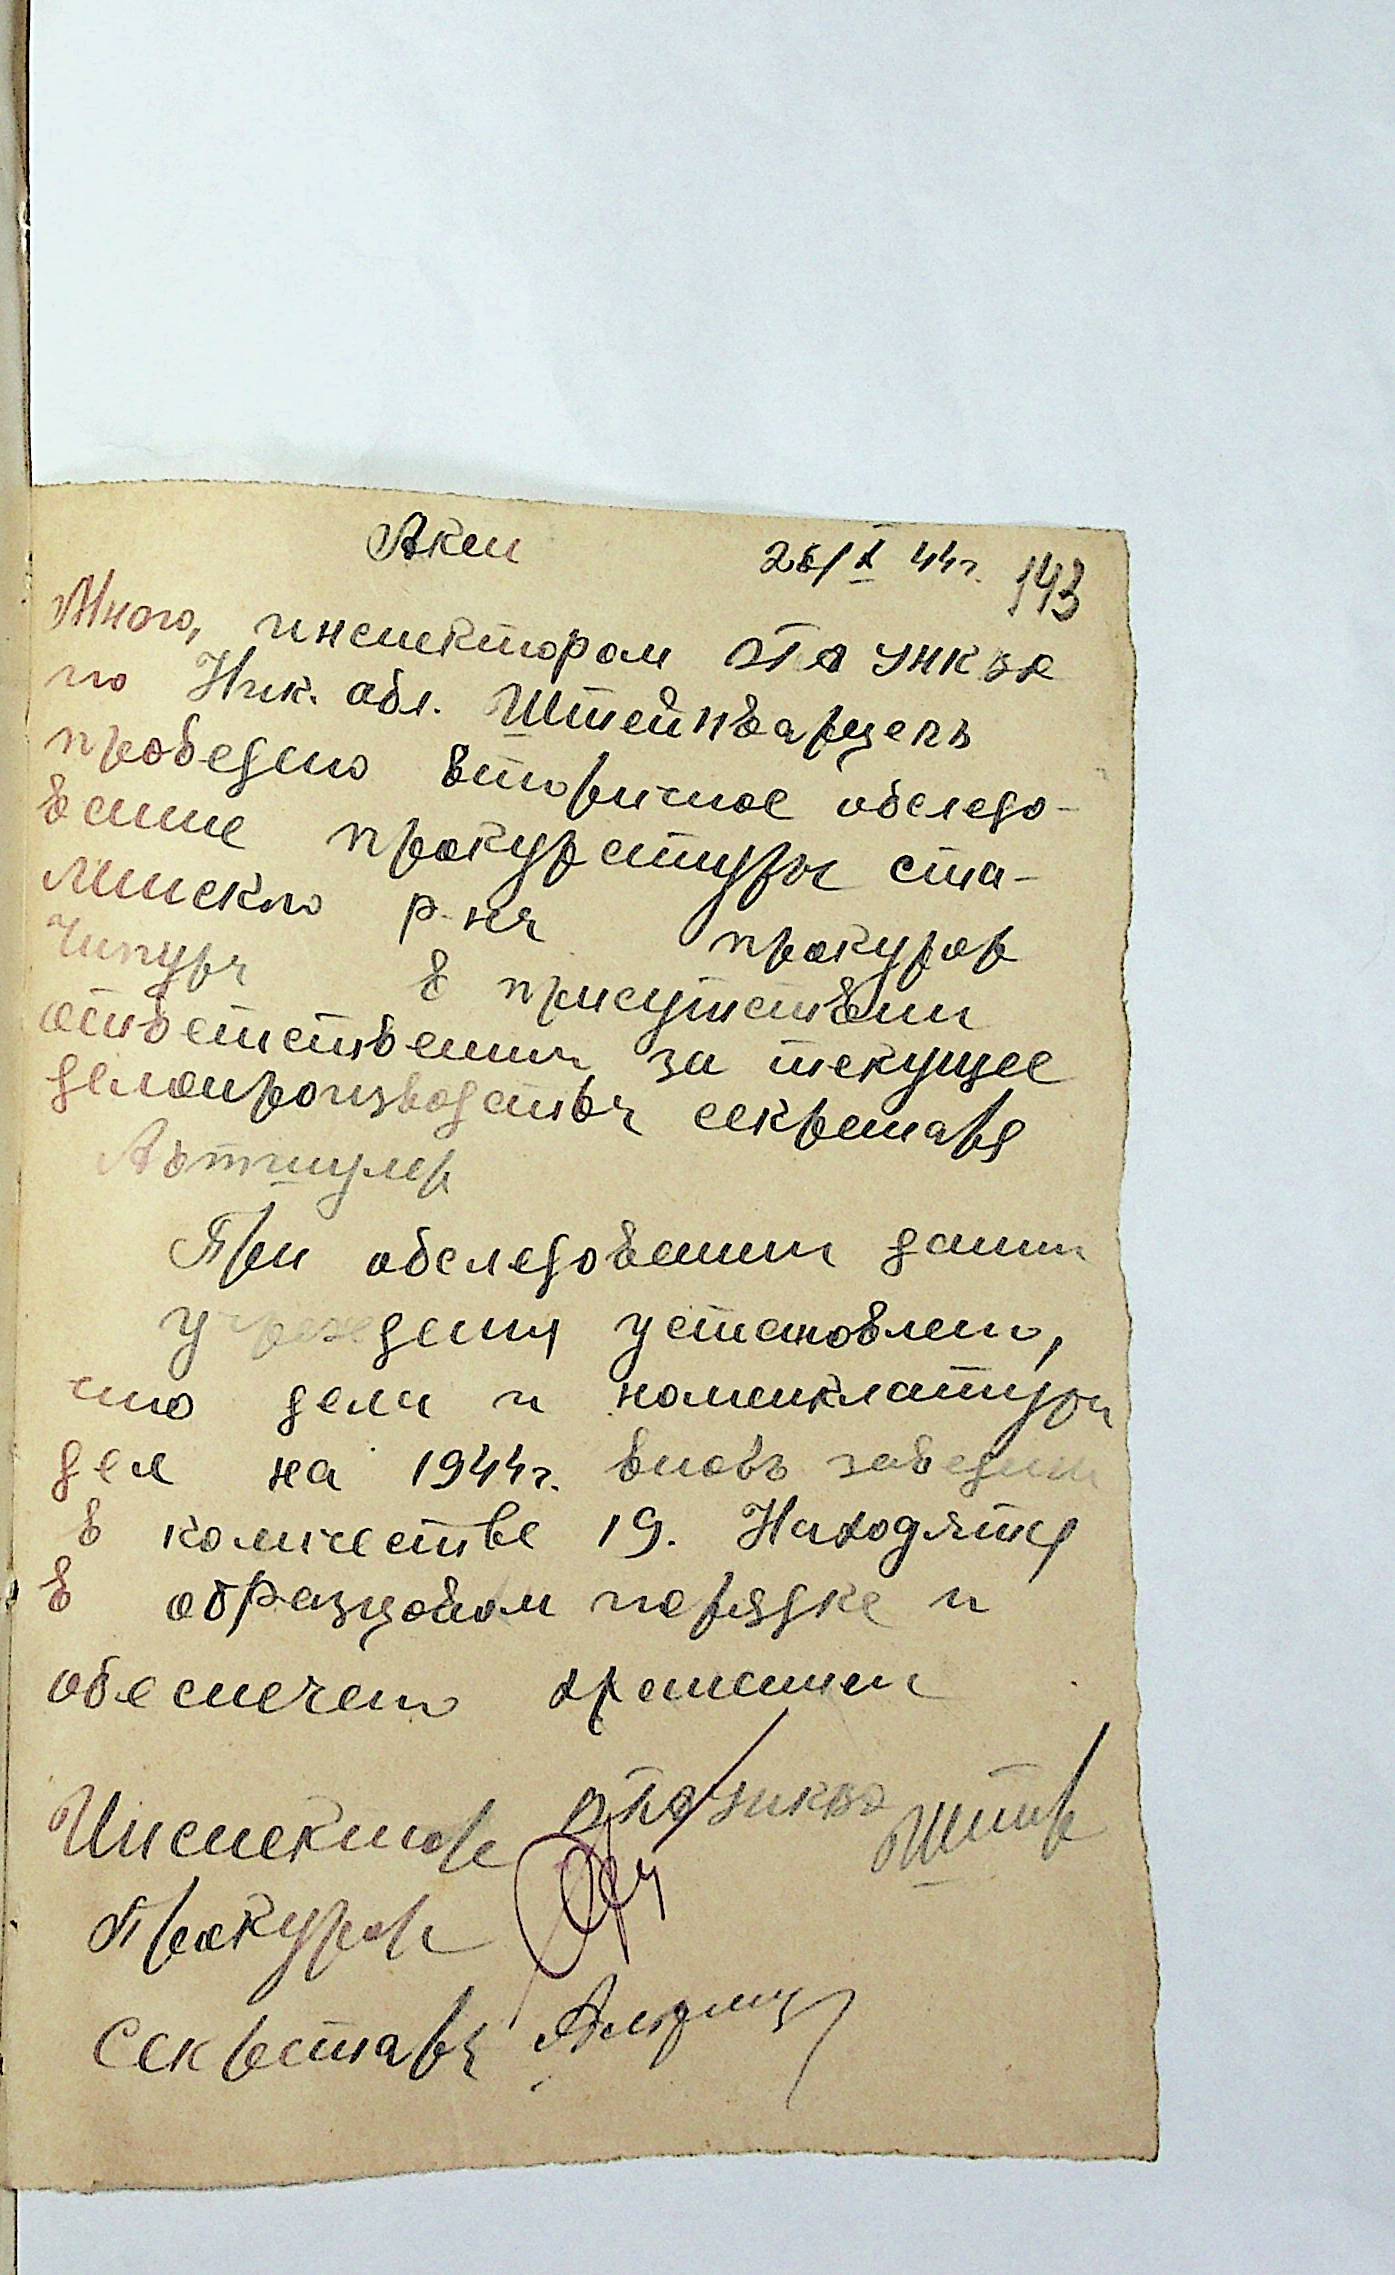 Акт 26/X 44г. 143
Мною, инспектором ОГА УНКВД
по Ник. обл. Штейнварцель
проведено вторичное обследо-
вание прокуратуры ста-
линского р-на прокурор
Чипура в присутствии
ответственных за текущее
делопроизводства секретаря
Альтшулер
При обследовании данных
учреждения установлено,
что дела и номенклатура
дел на 1944г. вновь заведены
в количестве 19. Находятся
в образцовом порядке и
обеспечено хранением
Инспектор ОГА УНКВД
Прокурор
Секретарь